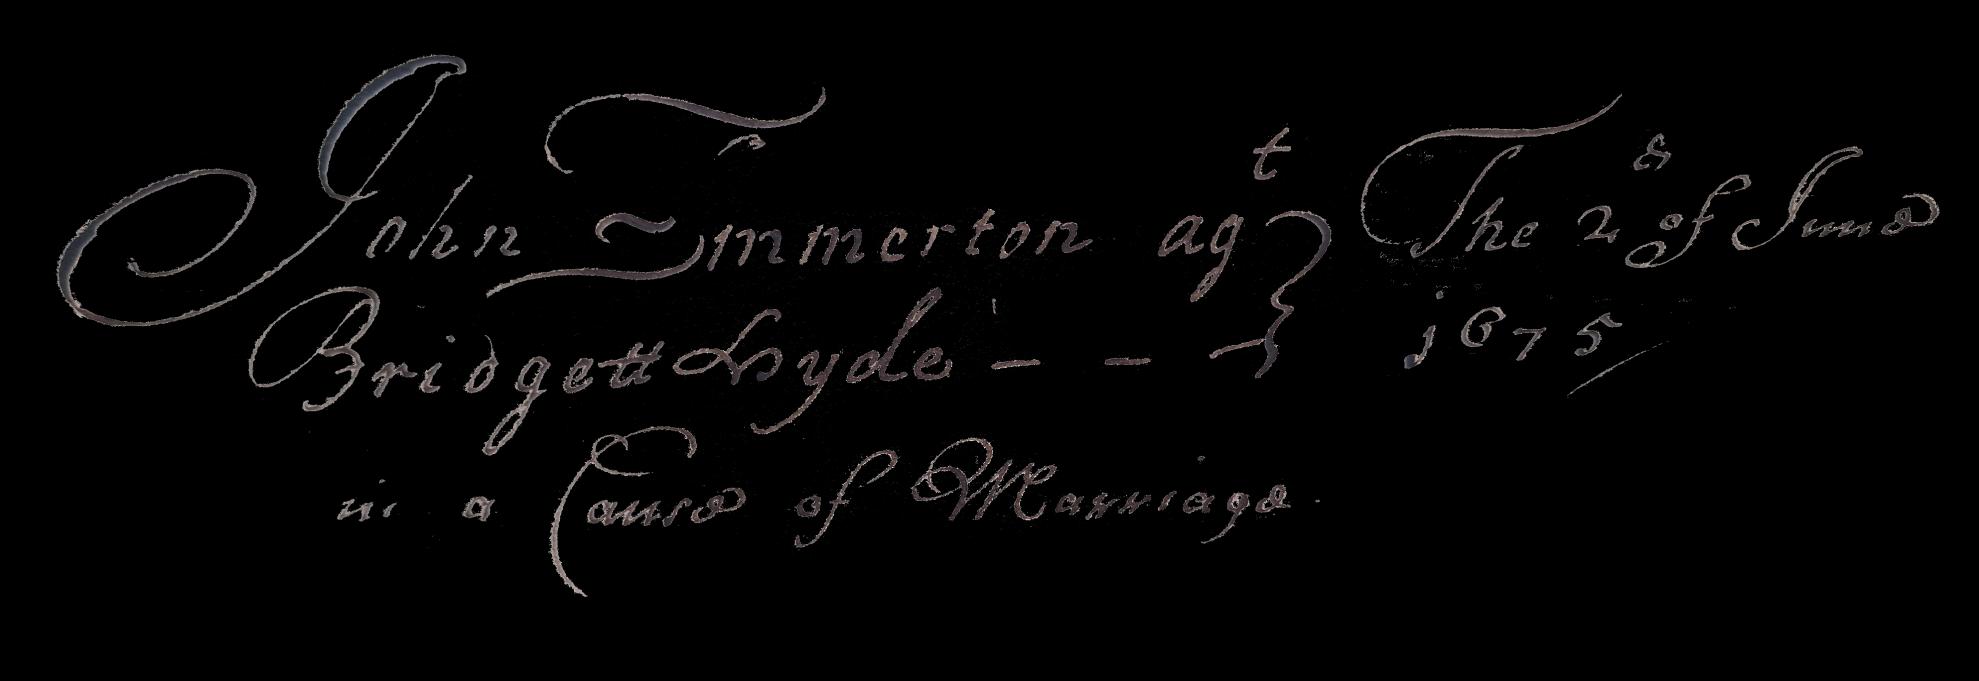 John Emmerton agt } The 2d of June
Bridgett Hyde - - } 1675
in a Cause of Marriage.